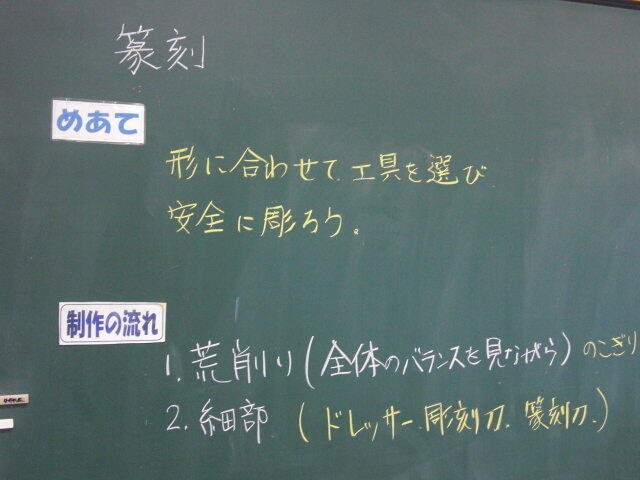 篆刻
めあて
形に合わせて工具を選び
安全に彫ろう。
制作の流れ
1. 荒削り(全体のバランスを見ながら) のこぎり
2. 細部 (ドレッサー.彫刻刀.篆刻刀.)